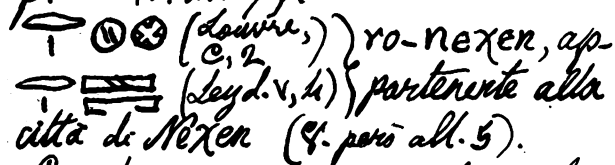 (Louvre, C, 2) ro-nexen, ap-
(Leyd. V, 4) partenente alla
città di Nexen (V. però all. 5).